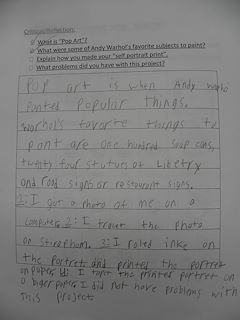 Critique/Reflection:
What is "Pop Art"?
What were some of Andy Warhol's favorite subjects to paint?
Explain how you made your "self portrait print".
What problems did you have with this project?
POP art is when Andy
Panted Popular things.
Warhol's favorite things to
pant are one hundred soup cans,
twenty four statues of
and road signs or restaurant signs.
I got a photo of me on a
computer. 2: I the photo
on 3: I inke on
the Portret and printed the portret
on paper. I the printed portret on
a biger paper. I did not have problems with
this project.